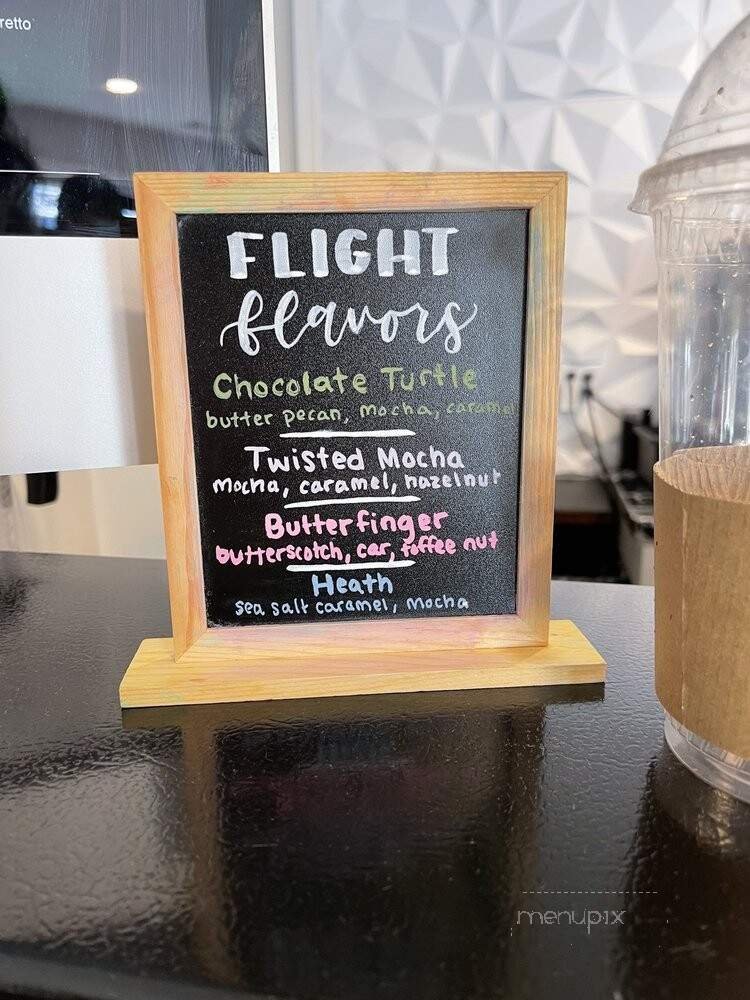 retto
FLIGHT
flavors
Chocolate Turtle
butter pecan, mocha, caramel
Twisted Mocha
mocha, caramel, hazelnut
Butterfinger
butterscotch, car, toffee nut
Heath
sea salt caramel, mocha
menupix